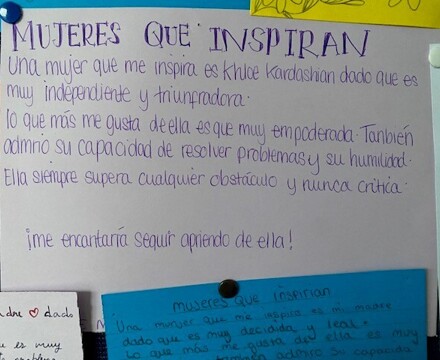 MUJERES QUE INSPIRAN
Una mujer que me inspira es Khloe Kardashian dado que es
muy independiente y triunfradora.
lo que más me gusta de ella es que muy empoderada. Tanbién
admrio su capacidad de resolver problemas y su humilidad.
Ella siempre supera cualquier obstáculo y nunca critica.
¡me encantaría seguir apriendo de ella!
dado
es muy
mujeres que inspirian
Una mujer que me inspira es mi madre
dado que es muy decidida y leal.
Lo que más me gusta de ella es muy
también admiro su capacidad